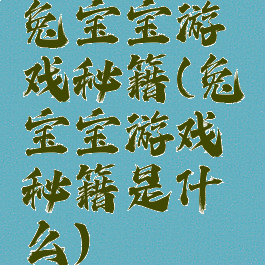 兔宝宝游
戏秘籍(兔
宝宝游戏
秘籍是什
么)